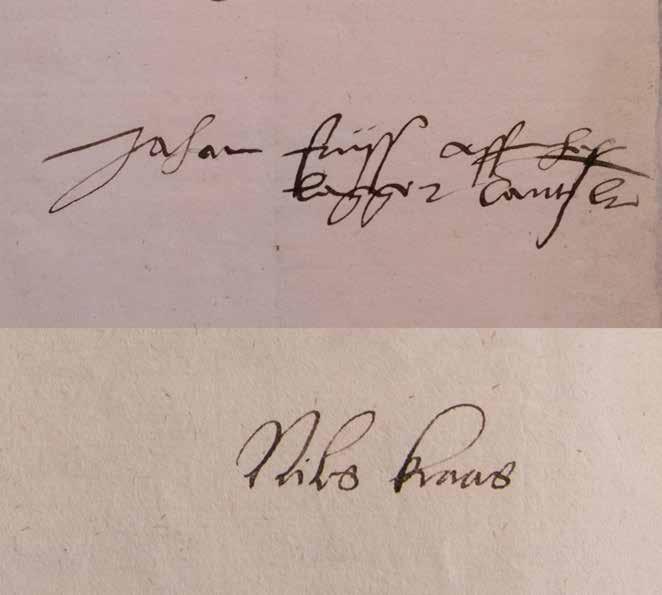 Johan friiss aff hes
lagger Cantzler
Niels kaas